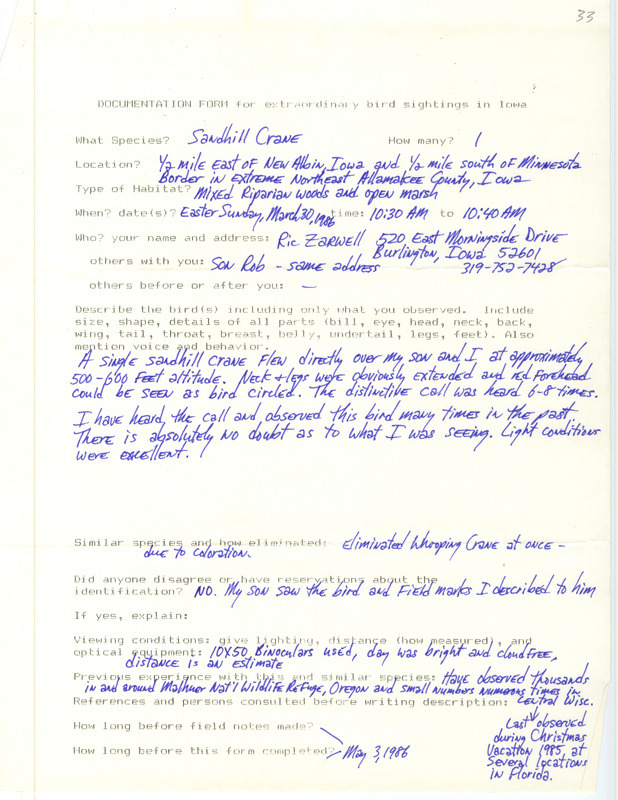 33
DOCUMENTATION FORM for extraordinary bird sightings in Iowa
What Species? Sandhill Crane How many? 1
Location? 1/2 mile East of New Albin, Iowa and 1/2 mile south of Minnesota
Border in Extreme Northeast Allamakee County, Iowa
Type of Habitat? Mixed Riparian woods and open marsh
When? date(s)? Easter Sunday, March 30, 1986 time: 10:30 AM to 10:40 AM
Who? your name and address: Ric Zarwell 520 East Morningside Drive
Burlington, Iowa 52601
others with you: Son Rob - same address 319-752-7428
others before or after you: —
Describe the bird(s) including only what you observed. Include
size, shape, details of all parts (bill, eye, head, neck, back,
wing, tail, throat, breast, belly, undertail, legs, feet). Also
mention voice and behavior.
A single sandhill crane flew directly over my son and I at approximately
500-600 feet altitude. Neck + legs were obviously extended and red forehead
could be seen as bird circled. The distinctive call was heard 6-8 times.
I have heard the call and observed this bird many times in the past.
There is absolutely no doubt as to what I was seeing. Light conditions
were excellent.
Similar species and how eliminated: Eliminated Whooping Crane at once -
due to coloration.
Did anyone disagree or have reservations about the
identification? No. My son saw the bird and field marks I described to him
If yes, explain:
Viewing conditions: give lighting, distance (how measured), and
optical equipment: 10X50 Binoculars used, day was bright and cloud free,
distance is an estimate
Previous experience with this and similar species: Have observed thousands
in and around Malhuer Nat'l Wildlife Refuge, Oregon and small numbers numerous times in
References and persons consulted before writing description: Central Wisc.
Last observed
during Christmas
Vacation 1985, at
several locations
in Florida.
How long before field notes made?
How long before this form completed? May 3, 1986